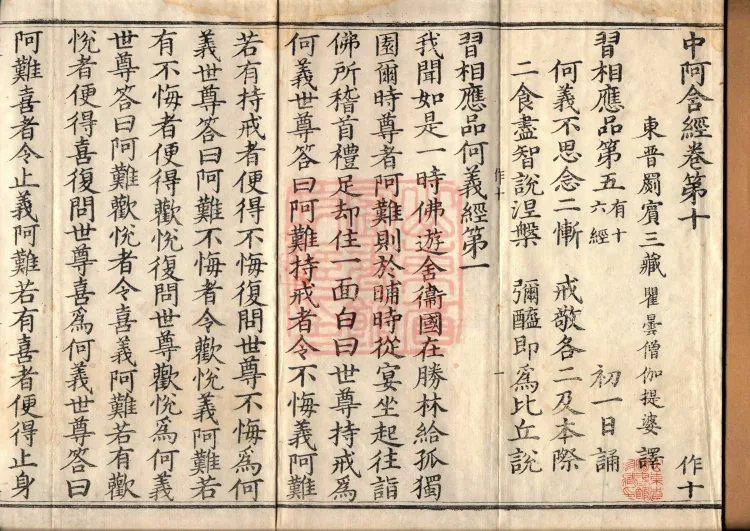 中阿含經卷第十 作十
東晉罽賓三藏瞿曇僧伽提婆譯
習相應品第五有十六經 初一日誦
何義不思念二慚 戒敬各二及本際
二食盡智說涅槃 彌醯即爲比丘說
作十 一
習相應品何義經第一
我聞如是一時佛遊舍衞國在勝林給孤獨
園爾時尊者阿難則於晡時從宴坐起往詣
佛所稽首禮足却住一面白曰世尊持戒爲
何義世尊答曰阿難持戒者令不悔義阿難
若有持戒者便得不悔復問世尊不悔爲何
義世尊答曰阿難不悔者令歡悅義阿難若
有不悔者便得歡悅復問世尊歡悅爲何義
世尊答曰阿難歡悅者令喜義阿難若有歡
悅者便得喜復問世尊喜爲何義世尊答曰
阿難喜者令止義阿難若有喜者便得止身